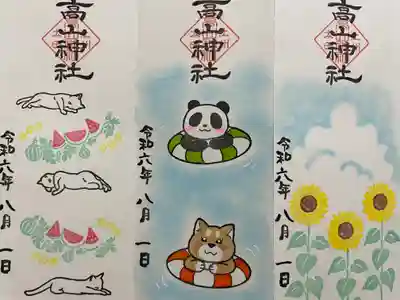 高山神社
令和六年 八月 一日
高山神社
令和六年 八月 一日
高山神社
令和六年 八月 一日